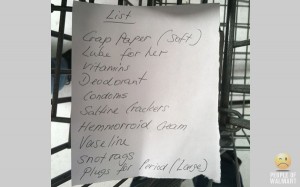 List
Crap Paper (Soft)
Lube for her
Vitamins
Deodorant
Condoms
Saltine Crackers
Hemmorroid Cream
Vaseline
Snot rags
Plugs for Period (Large)
PEOPLE OF
WALMART